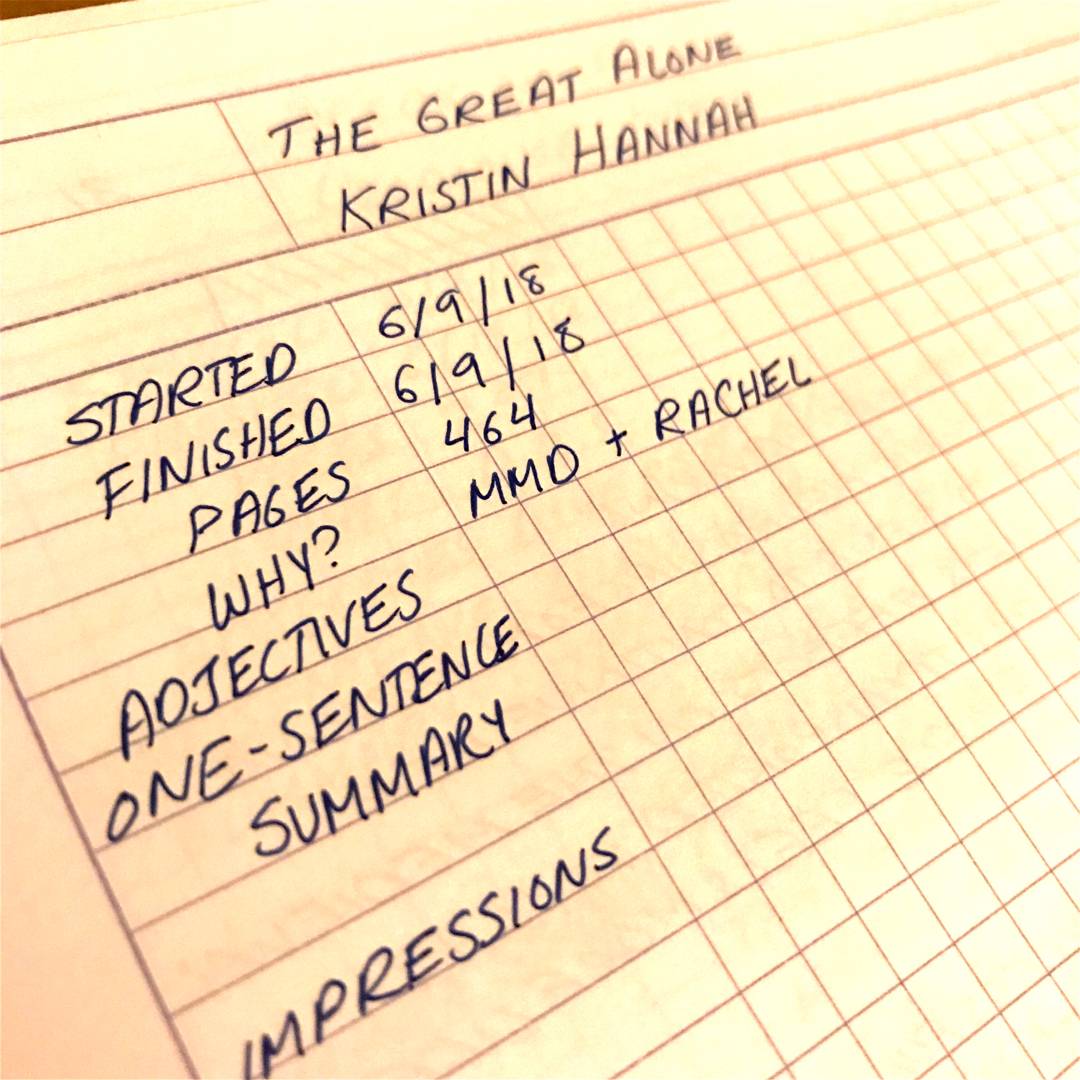 THE GREAT ALONE
KRISTIN HANNAH
STARTED 6/9/18
FINISHED 6/9/18
PAGES 464
WHY? MMD + RACHEL
ADJECTIVES
ONE-SENTENCE
SUMMARY
IMPRESSIONS